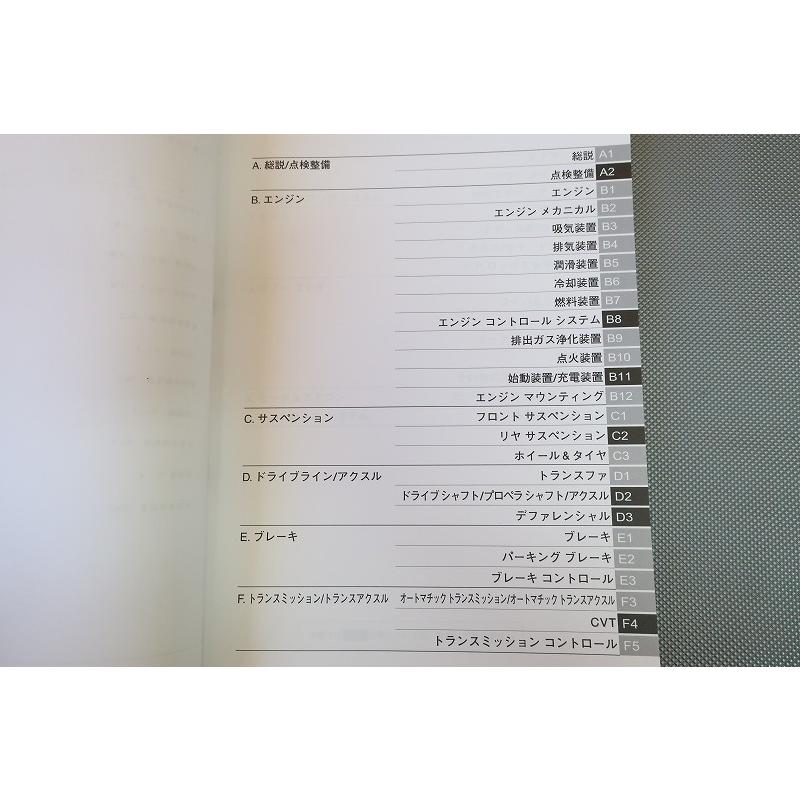 A. 総説/点検整備
総説 A1
点検整備 A2
B. エンジン
エンジン B1
エンジン メカニカル B2
吸気装置 B3
排気装置 B4
潤滑装置 B5
冷却装置 B6
燃料装置 B7
エンジン コントロール システム B8
排出ガス浄化装置 B9
点火装置 B10
始動装置/充電装置 B11
エンジン マウンティング B12
C. サスペンション
フロント サスペンション C1
リヤ サスペンション C2
ホイール＆タイヤ C3
D. ドライブライン/アクスル
トランスファ D1
ドライブ シャフト/プロペラ シャフト/アクスル D2
デファレンシャル D3
E. ブレーキ
ブレーキ E1
パーキング ブレーキ E2
ブレーキ コントロール E3
F. トランスミッション/トランスアクスル
オートマチック トランスミッション/オートマチック トランスアクスル F3
CVT F4
トランスミッション コントロール F5